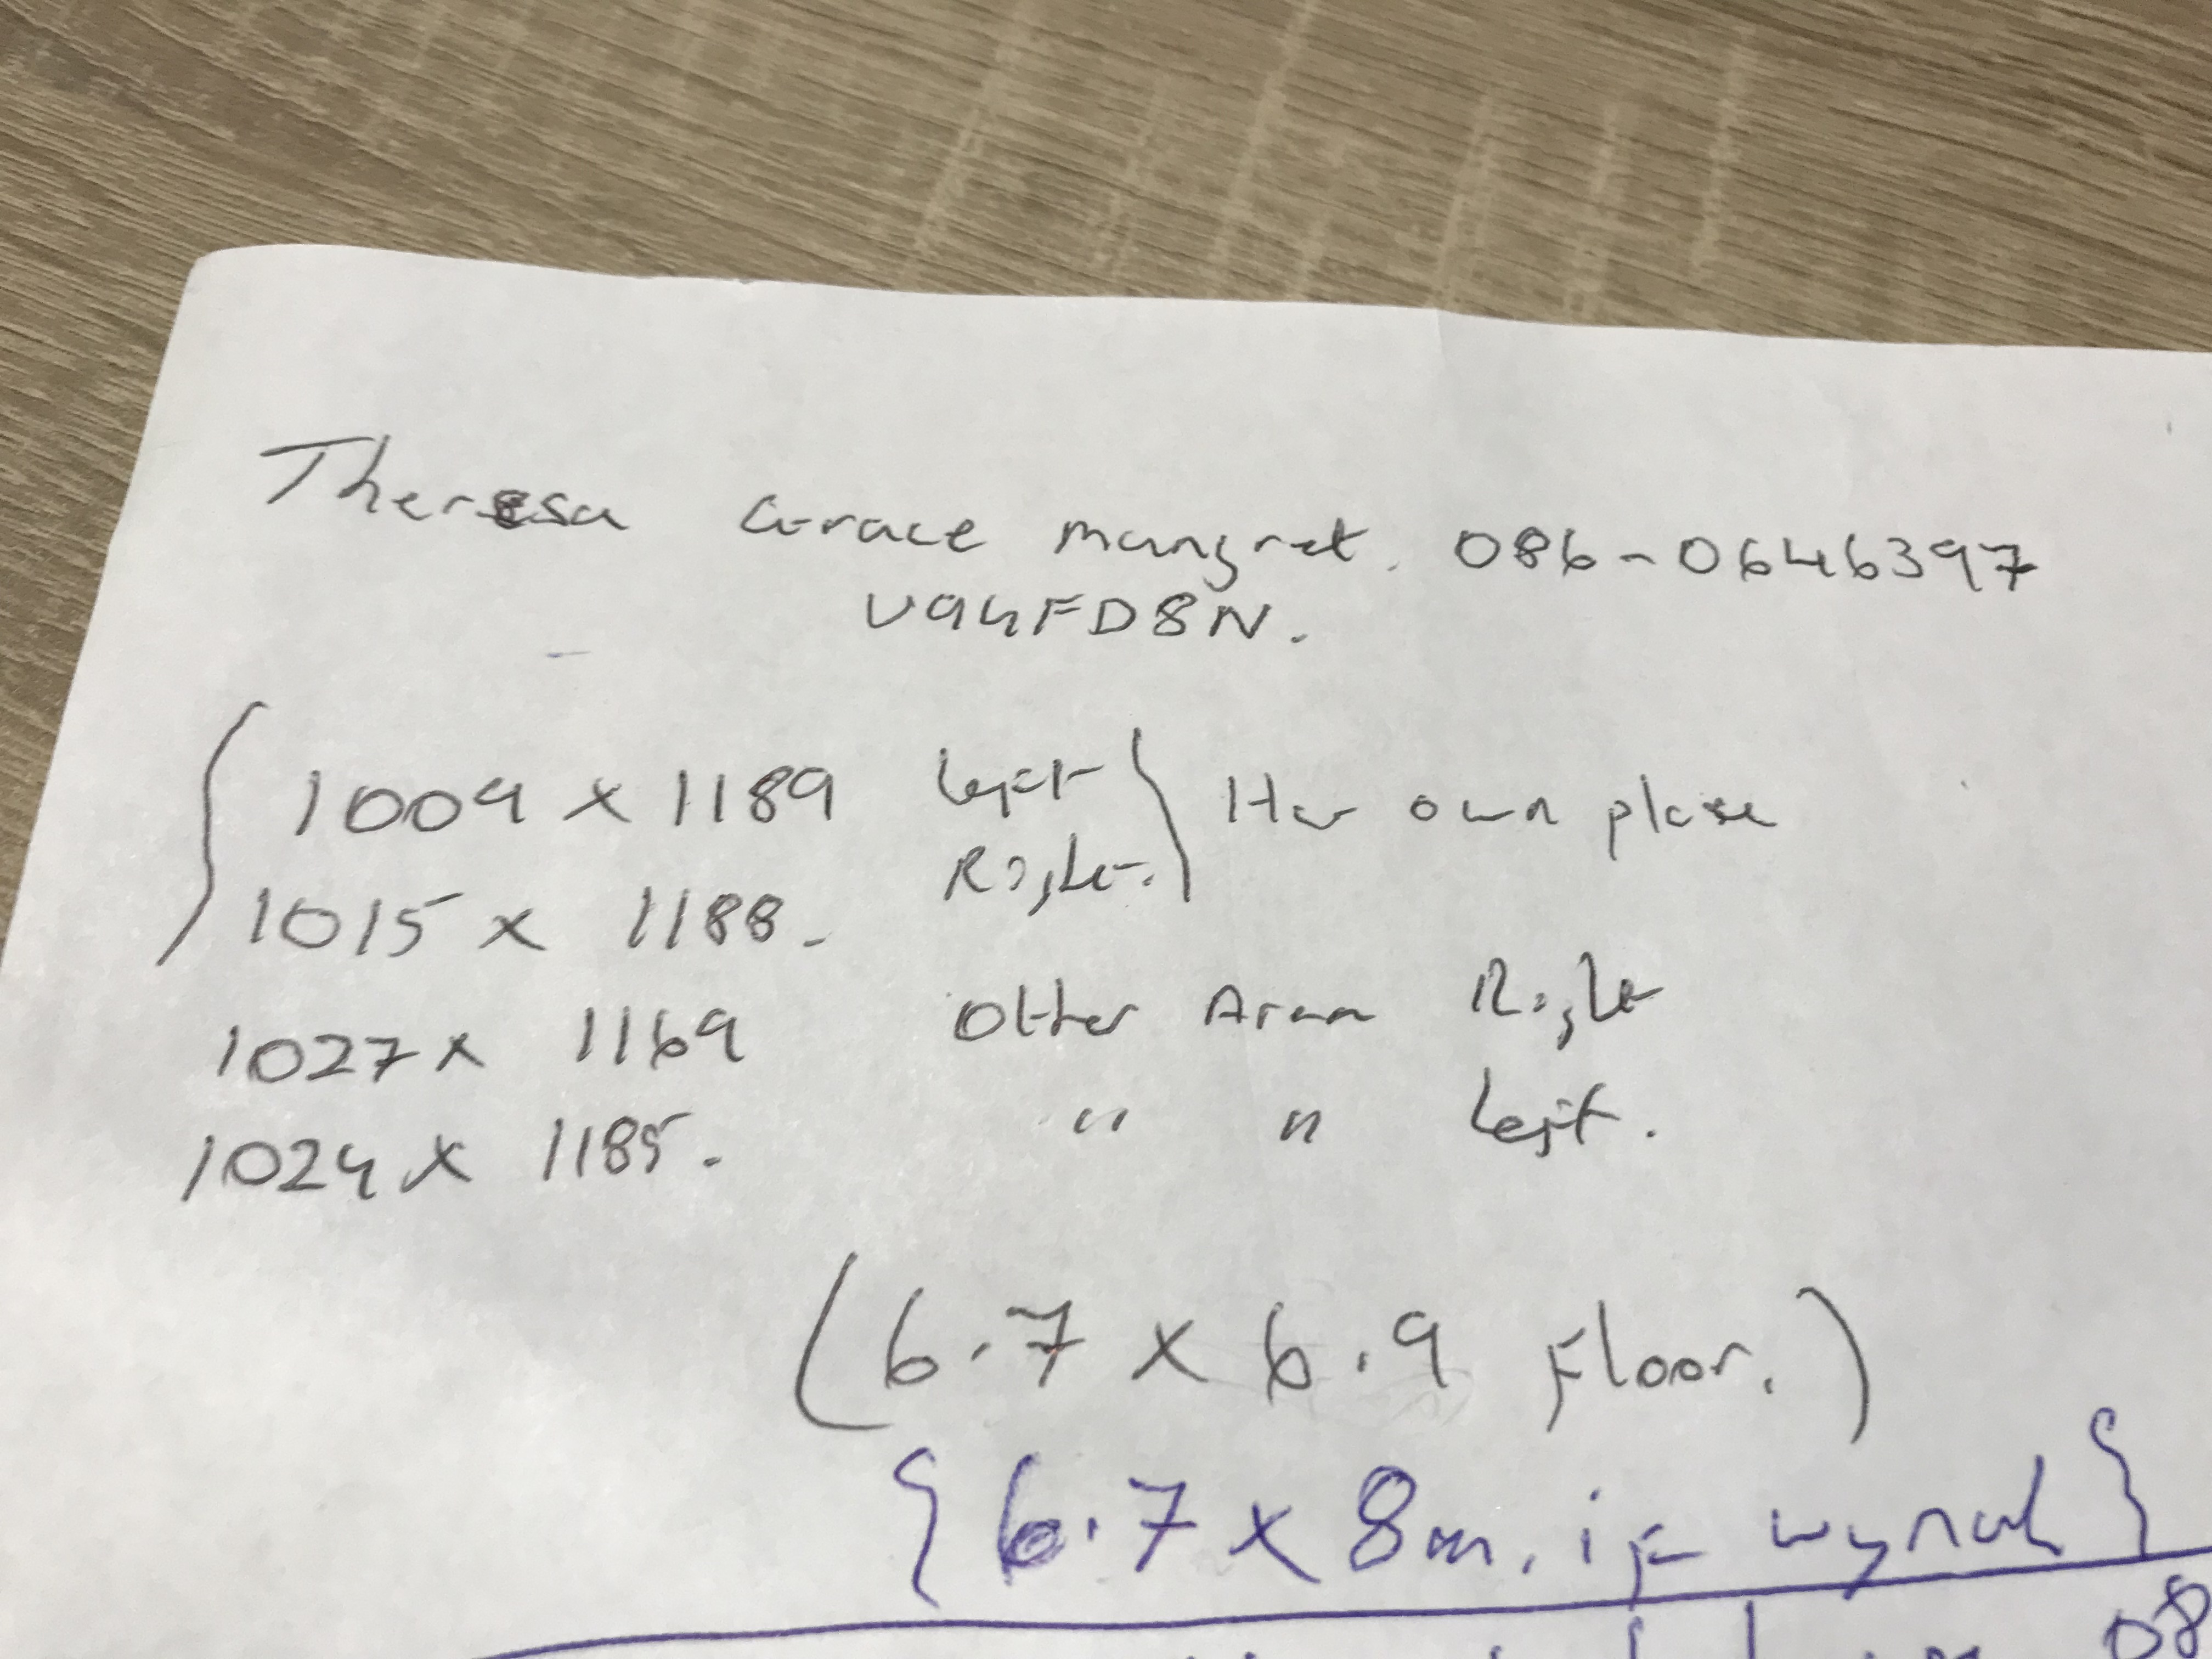 Theresa Grace Mangret. 086-0646397
V94FD8N.
1009 x 1189 Left
Right. Her own place
1015 x 1188.
1027 x 1169 Other Area Right
1024 x 1185. " " Left.
(6.7 x 6.9 Floor.)
{6.7 x 8m. if}
08